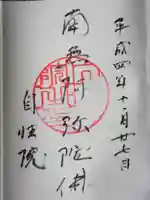 平成四年十一月廿七日
南無阿弥陀佛
自性院